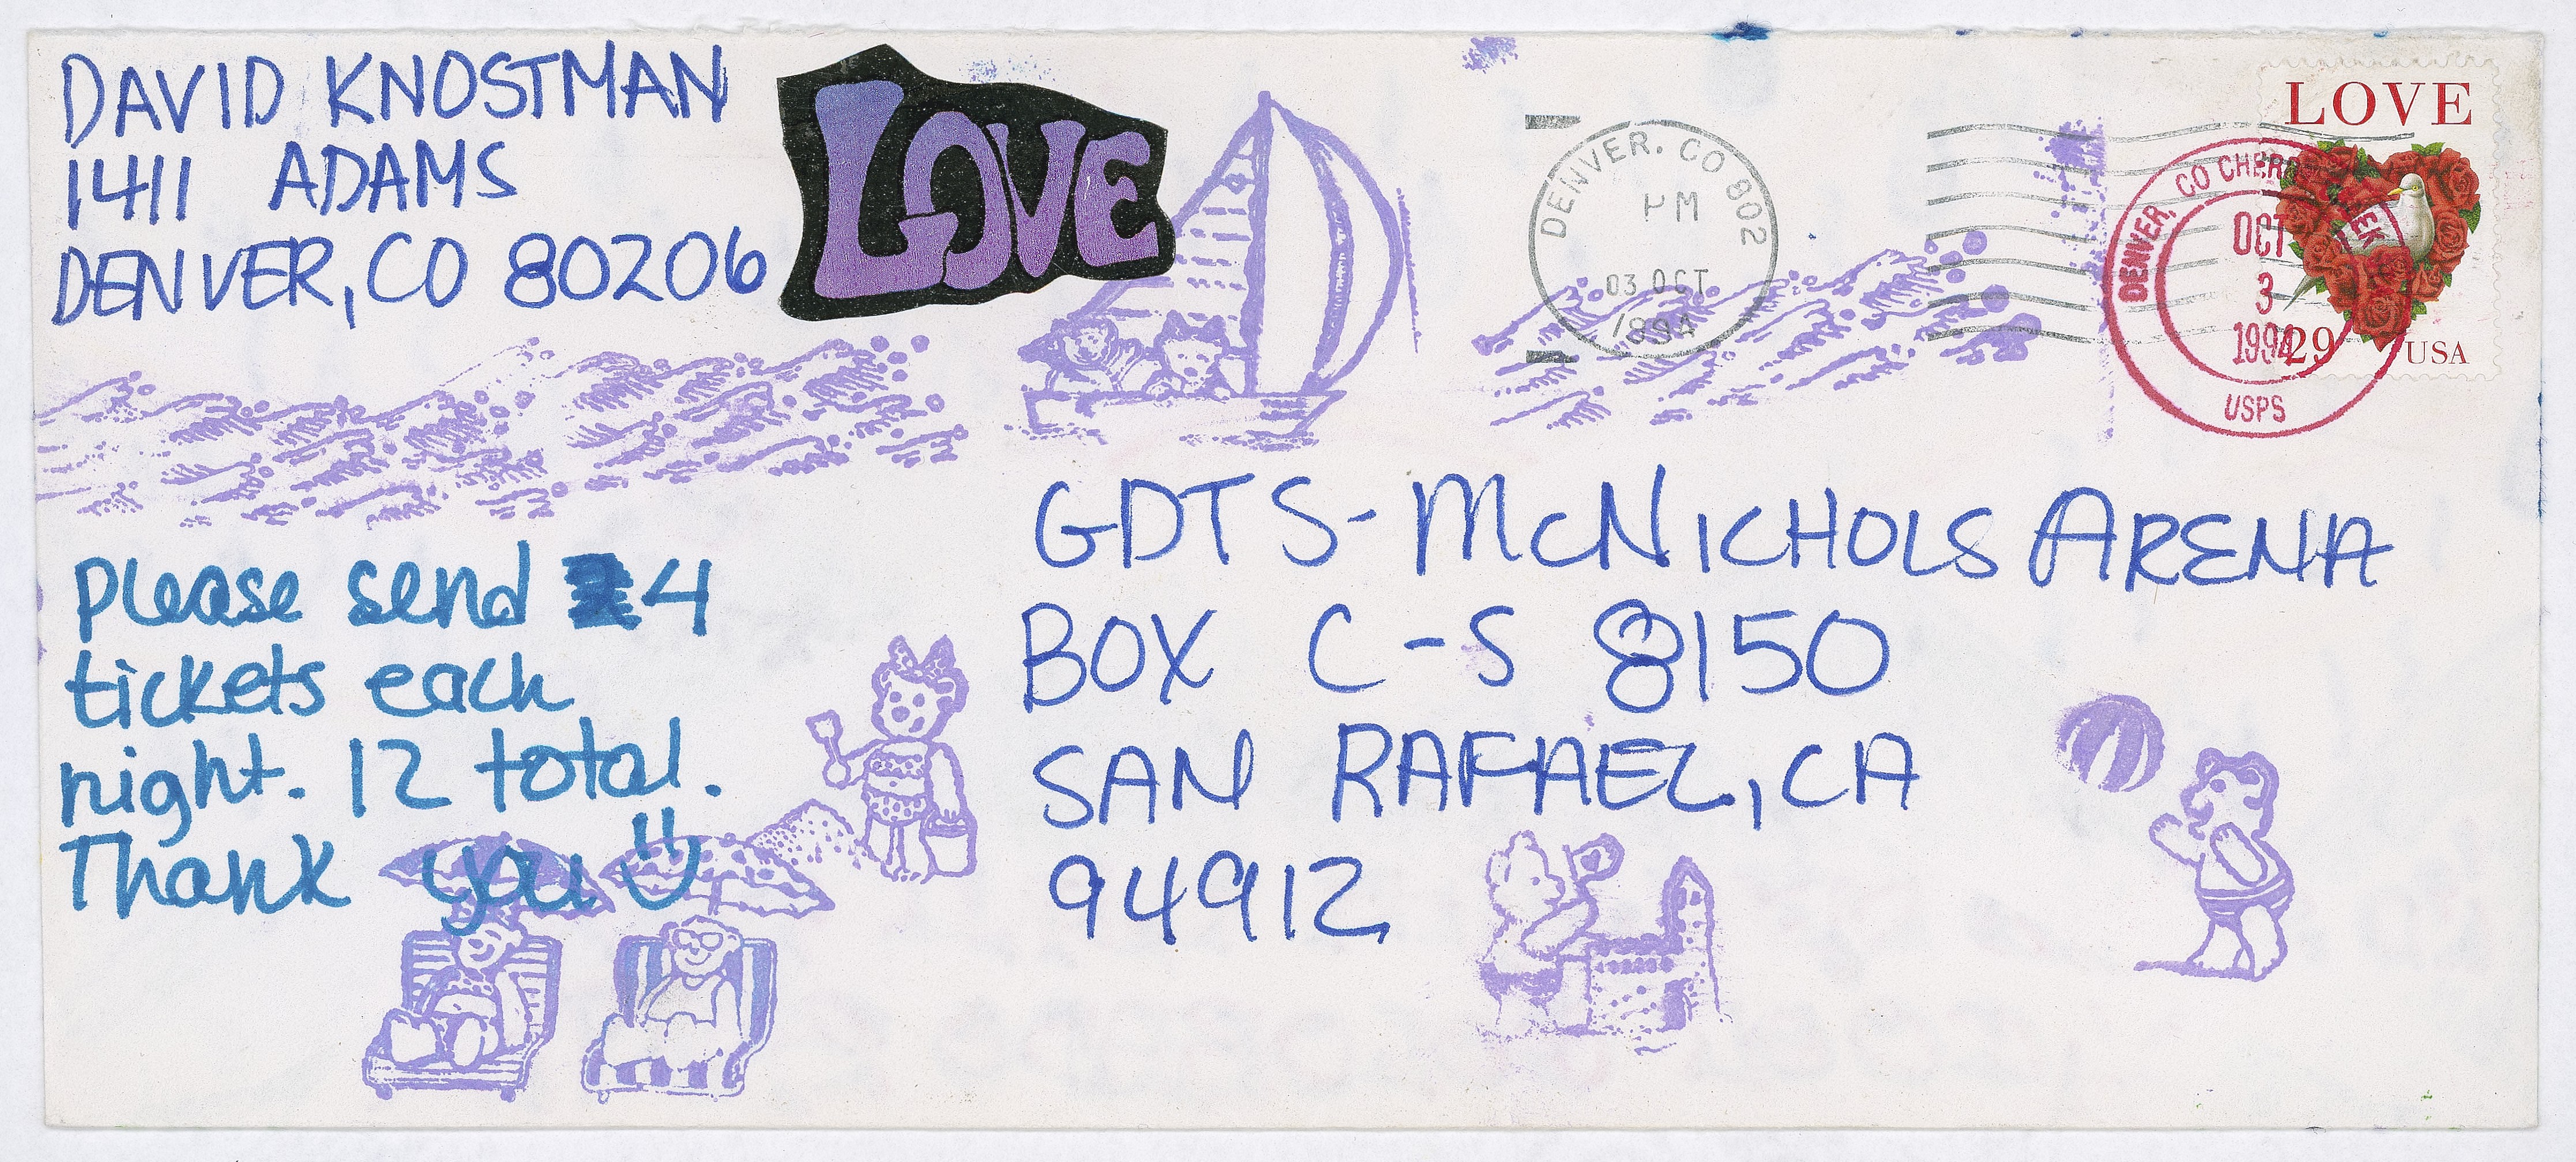 DAVID KNOSTMAN
1411 ADAMS
DENVER, CO 80206
LOVE
DENVER. CO 802
PM
03 OCT
1994
LOVE
29 USA
DENVER, CO CHERRY CREEK
OCT
3
1994
USPS
GDTS-McNICHOLS ARENA
BOX C-S 8150
SAN RAFAEL, CA
94912
Please send 4
tickets each
night. 12 total.
Thank you